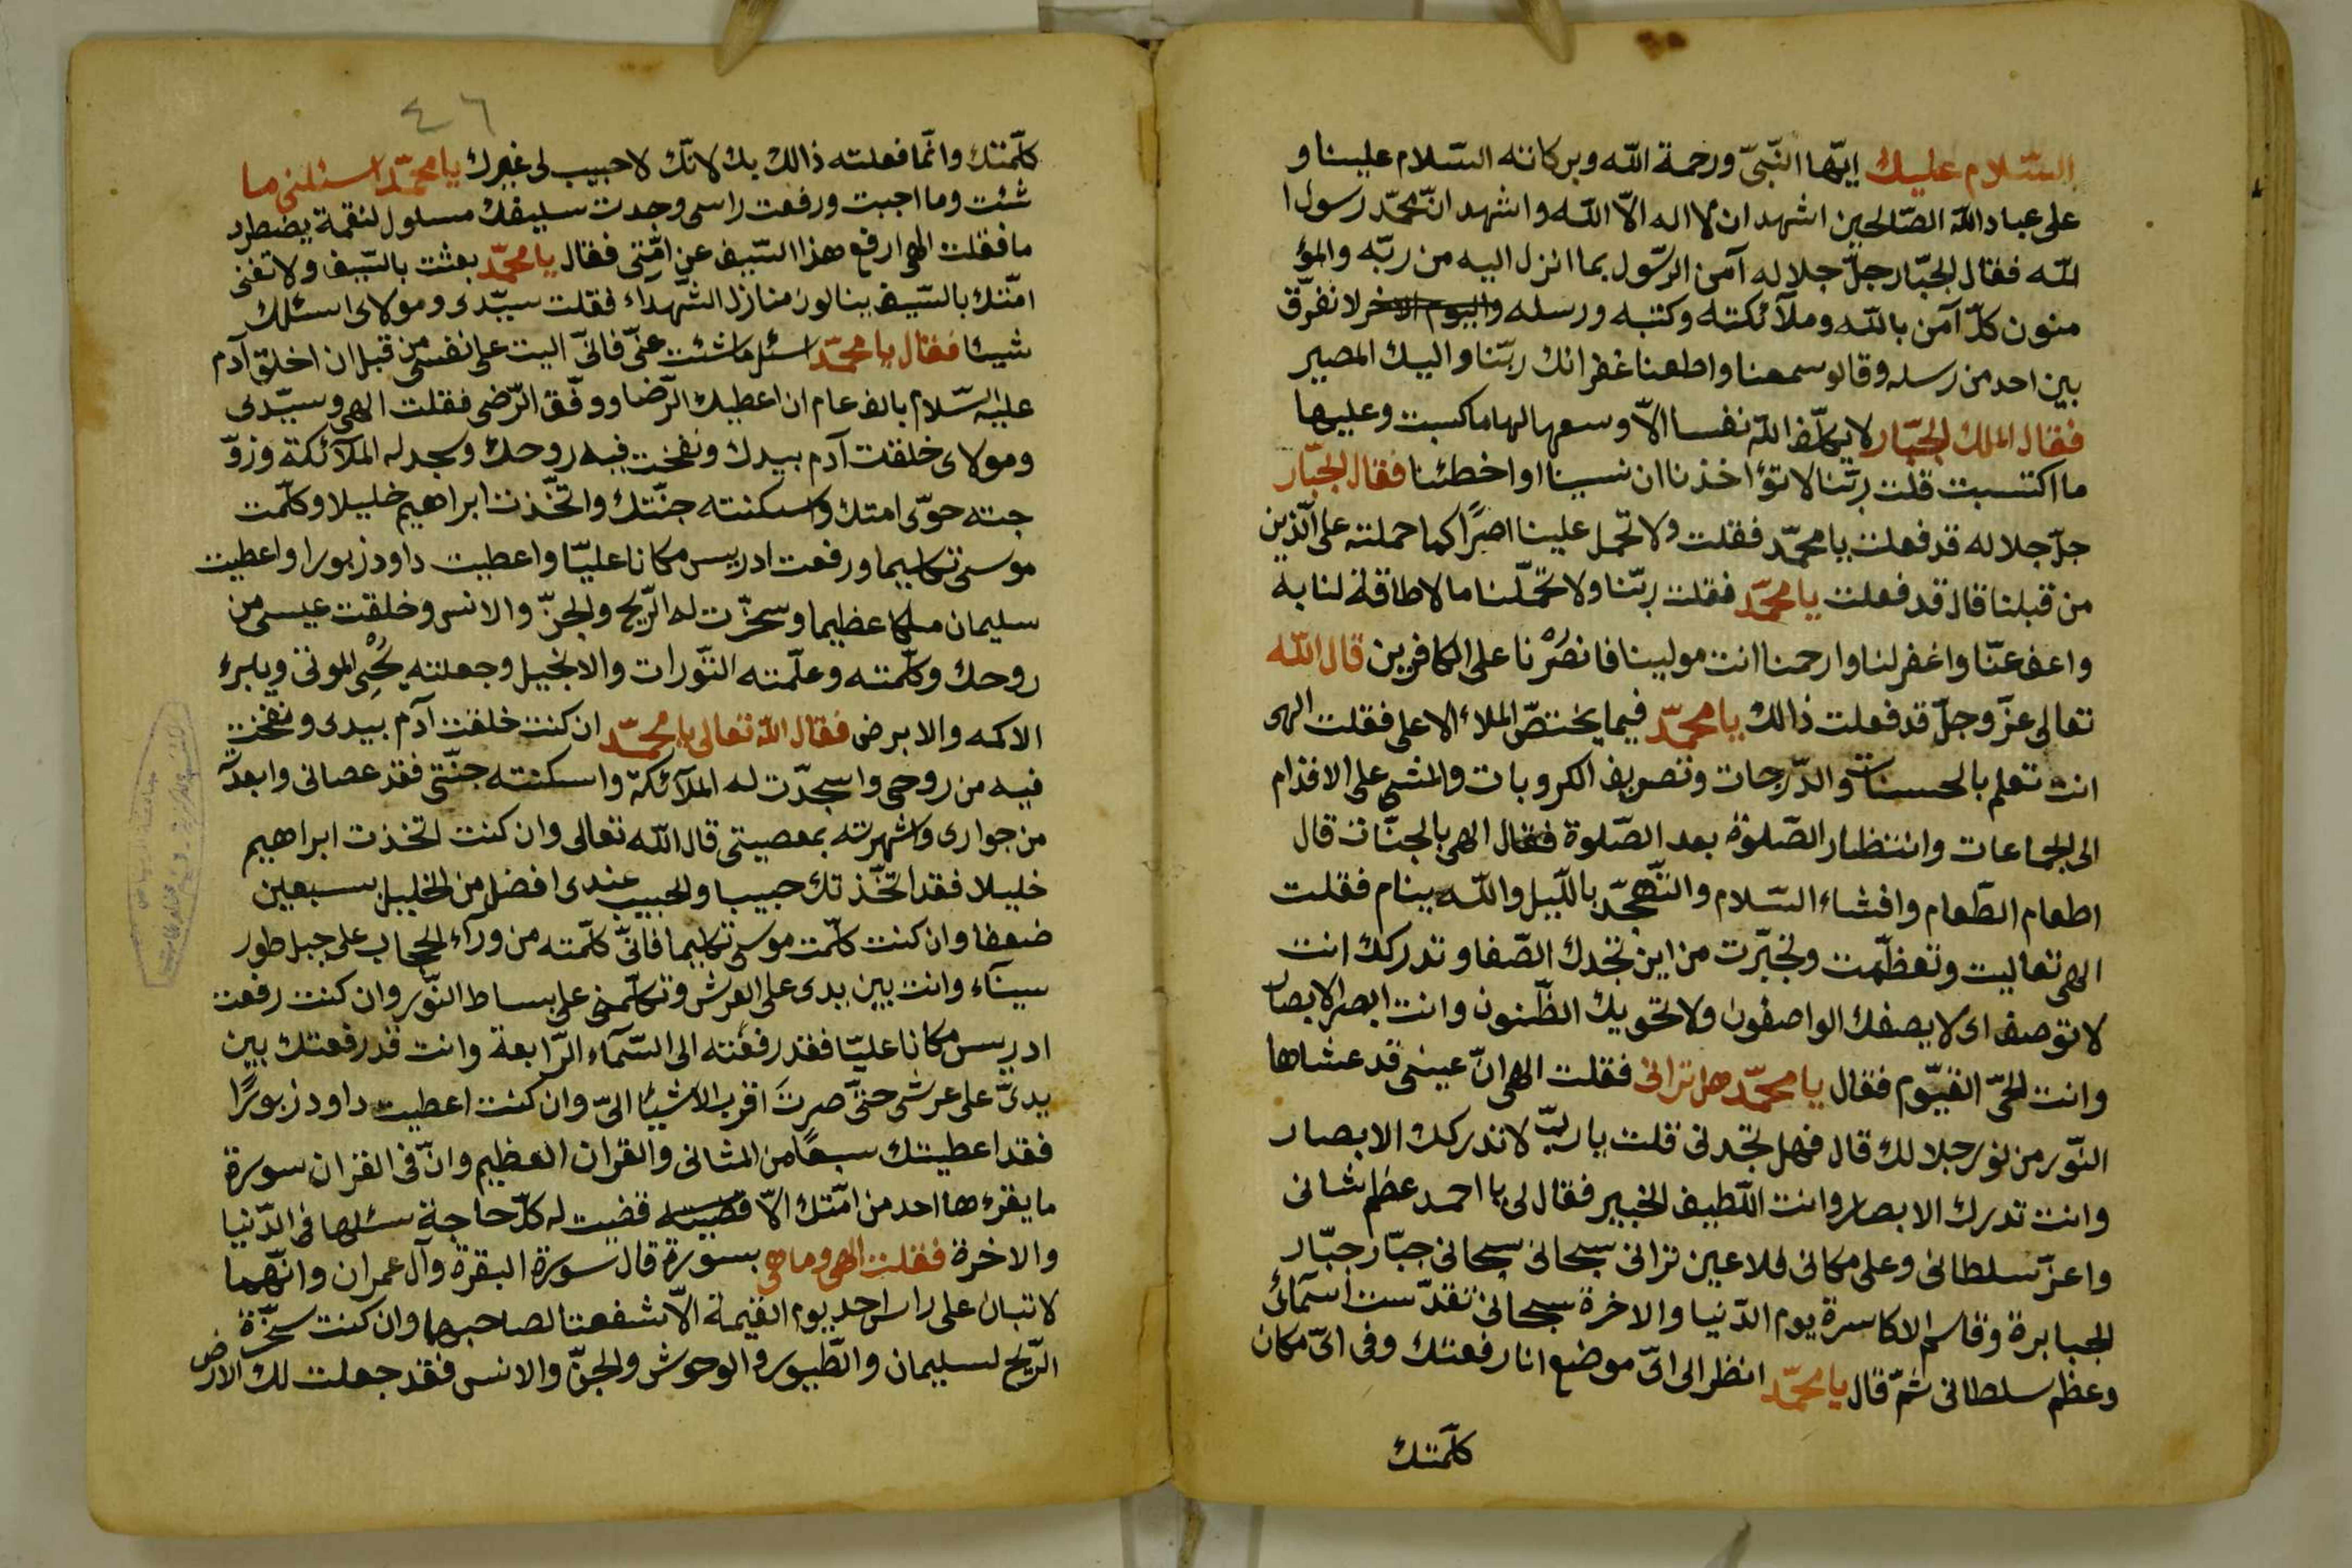 السّلام عليك ايّها النّبىّ ورحمة اللّه وبركاته السّلام علينا و
على عباد اللّه الصّالحين اشهد ان لا اله الاّ اللّه واشهد انّ محمّد رسول ا
للّه فقال الجبّار جلّ جلاله آمن الرّسول بما انزل اليه من ربّه والمؤ
منون كلّ آمن باللّه وملآئكته وكتبه ورسله واليوم الاخر لا نفرّق
بين احد من رسله وقالو سمعنا واطعنا غفرانك ربّنا واليك المصير
فقال الملك الجبّار لا يكلّف اللّه نفسا الاّ وسعها لها ما كسبت وعليها
ما اكتسبت قلت ربّنا لا تؤاخذنا ان نسينا او اخطئنا فقال الجبّار
جلّ جلاله قد فعلت يا محمّد فقلت ولا تحمل علينا اصرًا كما حملته على الّذين
من قبلنا قال قد فعلت يا محمّد فقلت ربّنا ولا تحمّلنا ما لا طاقة لنا به
واعف عنّا واغفر لنا وارحمنا انت مولينا فانصُرْنا على الكافرين قال اللّه
تعالى عزّ وجلّ قد فعلت ذالك يا محمّد فيما يختصّ الملاء الاعلى فقلت الهى
انت تعلم بالحسنات والدّرجات وتصريف الكروبات والمشى على الاقدام
الى الجماعات وانتظار الصّلوة بعد الصّلوة فقال الهى بالجنّات قال
اطعام الطّعام وافشاء السّلام والتّهجّد باللّيل واللّه ينام فقلت
الهى تعاليت وتعظّمت وتجبّرت من اين تجدك الصّفا وتدركك انت
لا توصف اى لا يصفك الواصفون ولا تحويك الظّنون وانت ابصر الابصار
وانت الحىّ القيّوم فقال يا محمّد هل ترانى فقلت الهى انّ عينى قد عشاها
النّور من نور جلالك قال فهل تجدنى قلت يا ربّ لا تدركك الابصار
وانت تدرك الابصار وانت اللّطيف الخبير فقال لى يا احمد عظم شانى
واعزّ سلطانى وعلى مكانى فلا عين ترانى سبحانى سبحانى جبّار جبّار
الجبابرة وقاسم الاكاسرة يوم الدّنيا والاخرة سبحانى تقدّست اسمآئ
وعظم سلطانى ثمّ قال يا محمّد انظر الى اىّ موضع انا رفعتك وفى اىّ مكان
كلّمتك
٤٦
كلّمتك وانّما فعلته ذالك بك لانّك لا حبيب لى غيرك يا محمّد اسئلنى ما
شئت وما اجبت ورفعت راسى وجدت سيفك مسلول لنقمة يضطرد
ما فقلت الهى ارفع هذا السّيف عن امّتى فقال يا محمّد بعثت بالسّيف ولا تفنى
امّتك بالسّيف ينالون منازل الشّهداء فقلت سيّدى ومولاى اسئلك
شيئا فقال يا محمّد اسئل ما شئت عنّى فانّى اليت على نفسى من قبل ان اخلق آدم
عليه السّلام بالف عام ان اعطيك الرّضا ووفّق الرّضى فقلت الهى وسيّدى
ومولاى خلقت آدم بيدك ونفخت فيه روحك وسجد له الملآئكة وزوّ
جته حوّى امتك واسكنته جنّتك واتّخذت ابراهيم خليلا وكلّمت
موسى تكليما ورفعت ادريس مكانا عليّا واعطيت داود زبورا واعطيت
سليمان ملكا عظيما وسخّرت له الرّيح والجنّ والانس وخلقت عيسى من
روحك وكلّمته وعلّمته التّورات والانجيل وجعلته يُحْيِى الموتى ويبرء
الاكمه والابرص فقال اللّه تعالى يا محمّد ان كنت خلقت آدم بيدى ونفخت
فيه من روحى واسجدّت له الملآئكة واسكنته جنّتى فقد عصانى وابعدّته
من جوارى واشهرته بمعصيتى قال اللّه تعالى وان كنت اتخذت ابراهيم
خليلا فقد اتّخذتك حبيبا والحبيب عندى افضل من الخليل سبعين
ضعفا وان كنت كلّمت موسى تكليما فانّى كلّمته من ورآء الحجاب على جبل طور
سينآء وانت بين يدى على العرش وتكلّمنى على بساط النّور وان كنت رفعت
ادريس مكانا عليّا فقد رفعته الى السّمآء الرّابعة وانت قد رفعتك بين
يدىّ على عرشى حتّى صرتَ اقرب الاشيئا الىّ وان كنت اعطيت داود زبورًا
فقد اعطيتك سبعًا من المثانى والقران العظيم وانّ فى القران سورة
ما يقرءها احد من امّتك الاّ قضيت له كلّ حاجة سئلها فى الدّنيا
والاخرة فقلت الهى وما هى بسورة قال سورة البقرة وآل عمران وانّهما
لا تبان على راس احد يوم القيمة الاّ شفعتا لصاحبهما وان كنت سخّرة
الرّيح لسليمان والطّيور والوحوش والجنّ والانس فقد جعلت لك الارض